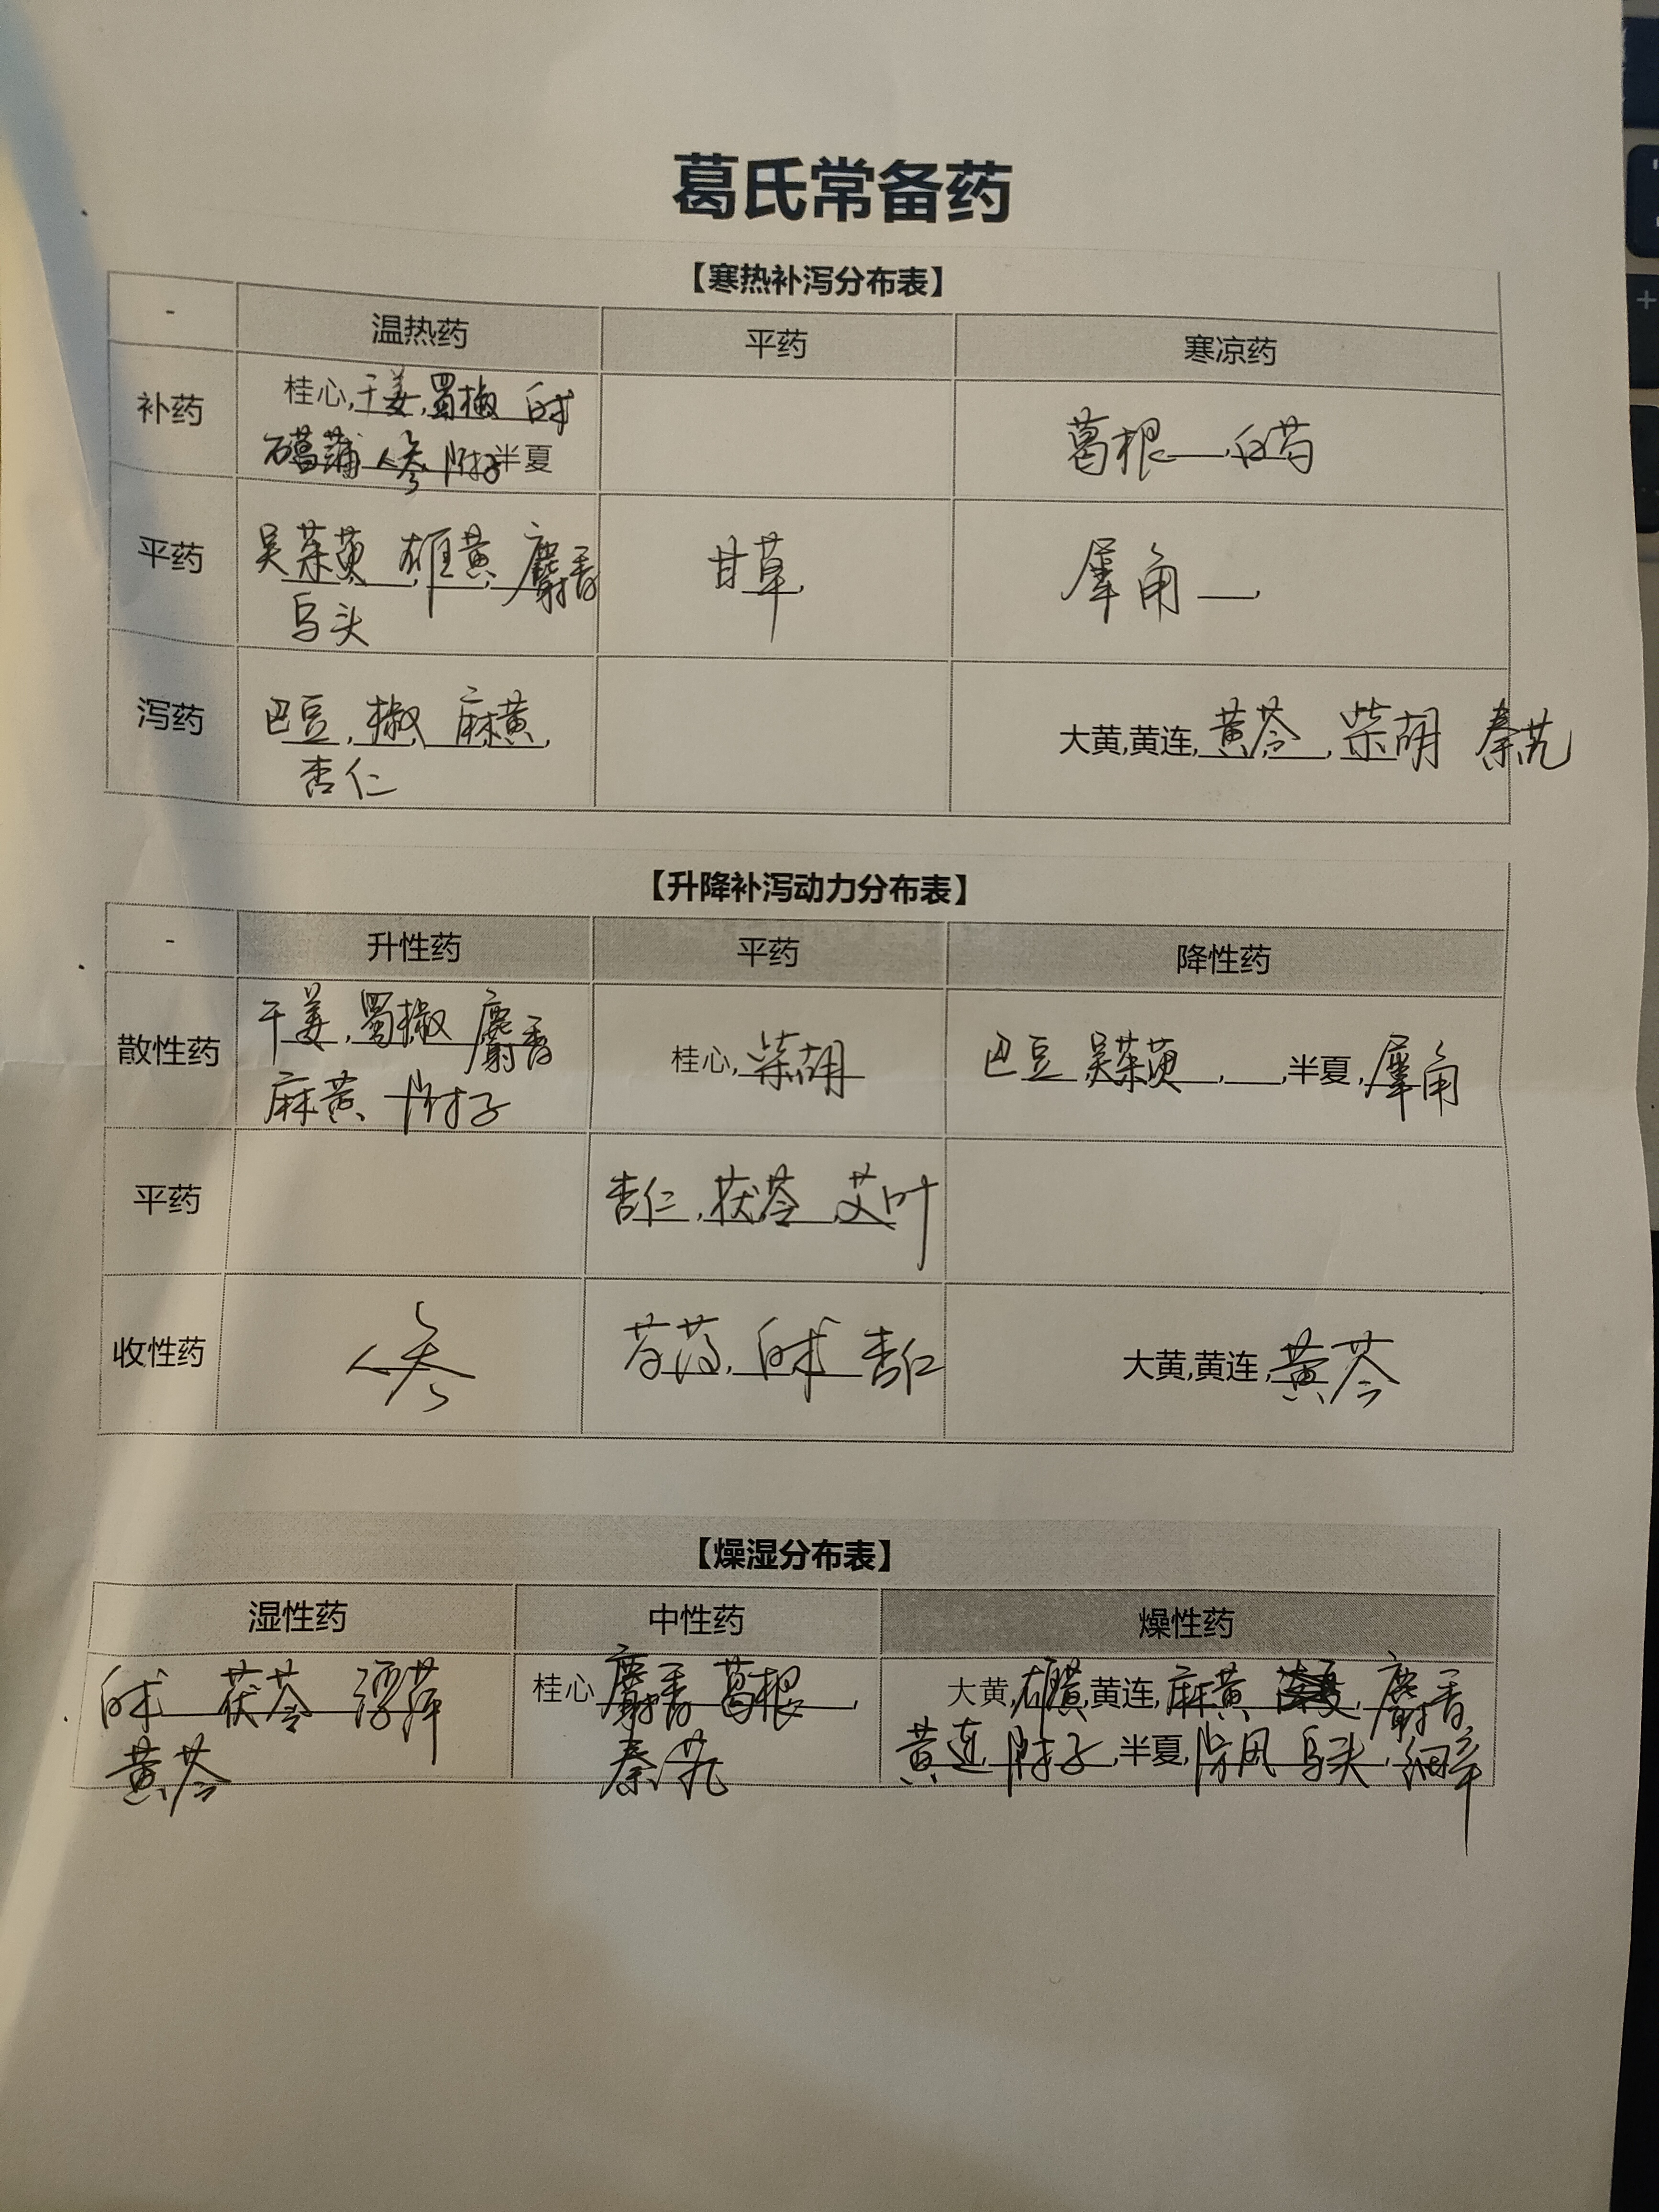 葛氏常备药
【寒热补泻分布表】
- 温热药 平药 寒凉药
补药 桂心,干姜,蜀椒 白术
石菖蒲 人参 附子 半夏
葛根 白芍
平药 吴茱萸 雄黄 麝香
乌头
甘草
犀角
泻药 巴豆, 椒 麻黄,
杏仁
大黄,黄连,黄芩,柴胡 秦艽
【升降补泻动力分布表】
- 升性药 平药 降性药
散性药 干姜,蜀椒 麝香
麻黄 附子
桂心,柴胡
巴豆 吴茱萸, ,半夏,犀角
平药 杏仁,茯苓 艾叶
收性药 人参 芍药,白术 杏仁 大黄,黄连,黄芩
【燥湿分布表】
湿性药 中性药 燥性药
白术 茯苓 浮萍
黄芩
桂心 麝香 葛根,
秦艽
大黄,硫黄,黄连,麻黄 麝香
黄连 附子,半夏,防风 乌头,细辛